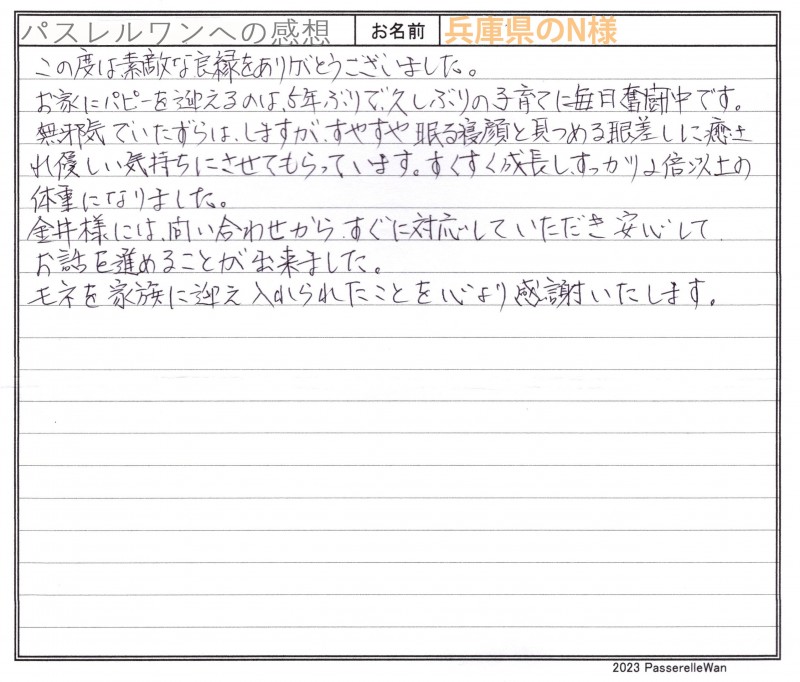 パスレルワンへの感想 お名前 兵庫県のN様
この度は素敵な良縁をありがとうございました。
お家にパピーを迎えるのは、5年ぶりで、久しぶりの子育てに毎日奮闘中です。
無邪気でいたずらは、しますが、すやすや眠る寝顔と見つめる眼差しに癒さ
れ優しい気持ちにさせてもらっています。すくすく成長し、すっかり2倍以上の
体重になりました。
金井様には、問い合わせから、すぐに対応していただき安心して
お話を進めることが出来ました。
モネを家族に迎え入れられたことを心より感謝いたします。
2023 PasserelleWan